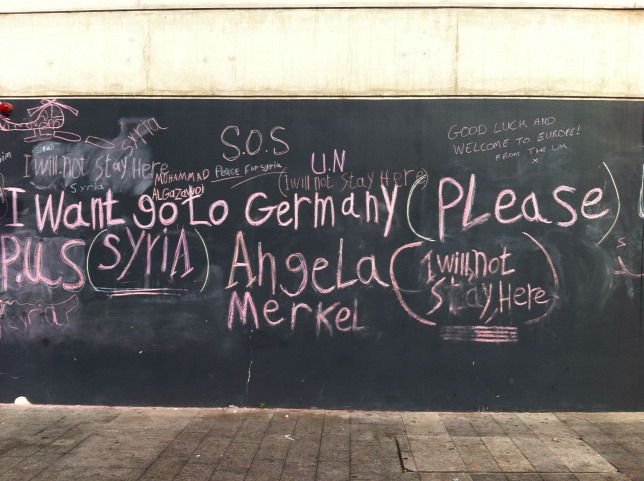 SYRIA
S.O.S
Peace For syria
GOOD LUCK AND
WELCOME TO EUROPE!
FROM THE UK
x
I will not Stay Here
Syria
MUHAMMAD
ALGAZAWOI
U.N
(I will not Stay Here)
I Want go to Germany (PLease)
P.US (SYRIA) AngeLa (I will not
Stay, Here)
MerKeL